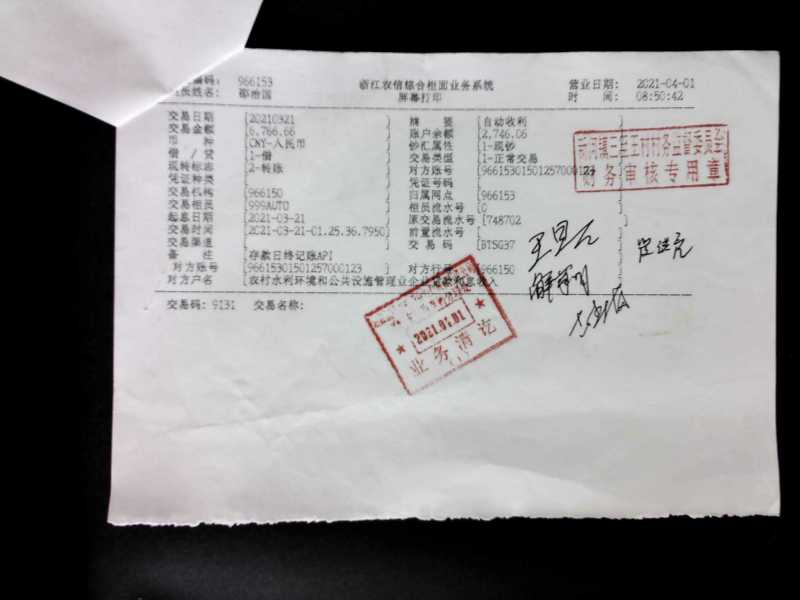 编码: 966153 浙江农信综合柜面业务系统 营业日期: 2021-04-01
员姓名: 邵治国 屏幕打印 时 间: 08:50:42
交易日期 [20210321 摘 要 [自动收利
交易金额 [6,766.66 账户余额 [2,746.06
币 种 [CNY-人民币 钞汇属性 [1-现钞
借 / 贷 [1-借 交易类型 [1-正常交易
现转标志 [2-转账 对方账号 [96615301501257000123
凭证种类 [ 凭证号码 [
交易机构 [966150 归属网点 [966153
交易柜员 [999AUTO 柜员流水号 [0
起息日期 [2021-03-21 原交易流水号 [748702
交易时间 [2021-03-21-01.25.36.7950 前置流水号 [
交易渠道 [ 交 易 码 [BTSG37
备 注 [存款日终记账API
对方账号 [96615301501257000123 对方行号 [966150
对方户名 [农村水利环境和公共设施管理业企业贷款利息收入
交易码: 9131 交易名称:
村务监督委员会
财务审核专用章
2021.04.01
业务清讫